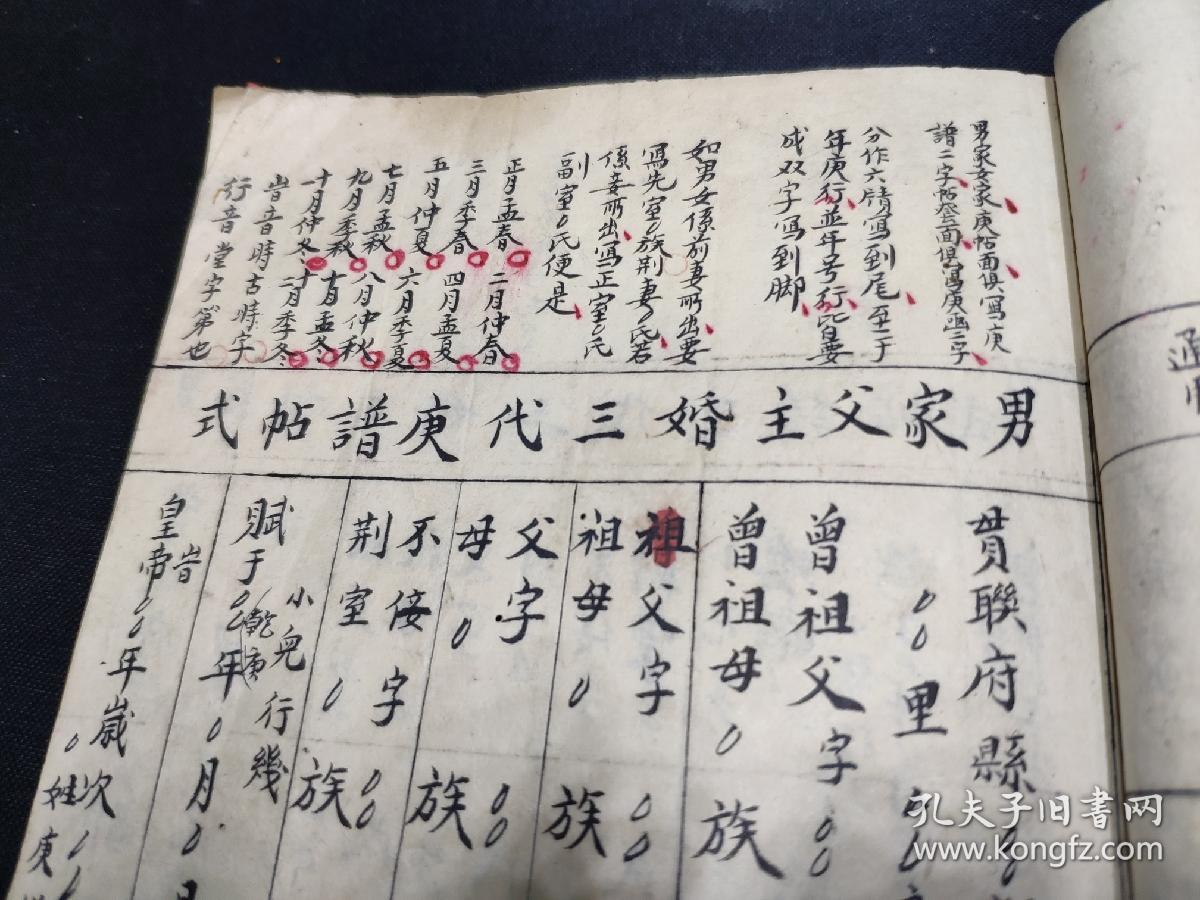 男家女家庚帖面俱寫庚
譜二字帖釜面俱寫庚譜二字
分作六牘寫到尾至于
年庚行並年号行皆要
成双字寫到脚
如男女係前妻所出要
寫先室〇族荆妻〇氏若
係妾所出寫正室〇氏
副室〇氏便是
正月孟春 二月仲春
三月季春 四月孟夏
五月仲夏 六月季夏
七月孟秋 八月仲秋
九月季秋 十月孟冬
十一月仲冬 十二月季冬
旹音時古時字
行音堂字第也
男家父主婚三代庚譜帖式
貫聯府縣
〇〇里
曾祖父字〇〇
曾祖母〇族
祖父字〇〇
祖母〇族
父字〇〇
母〇族
不佞字〇〇
荆室〇族
小兒行幾
乾庚
賦于〇〇年〇月〇
旹
皇帝〇〇年歲次〇〇
〇姓庚
通
孔夫子旧书网
www.kongfz.com